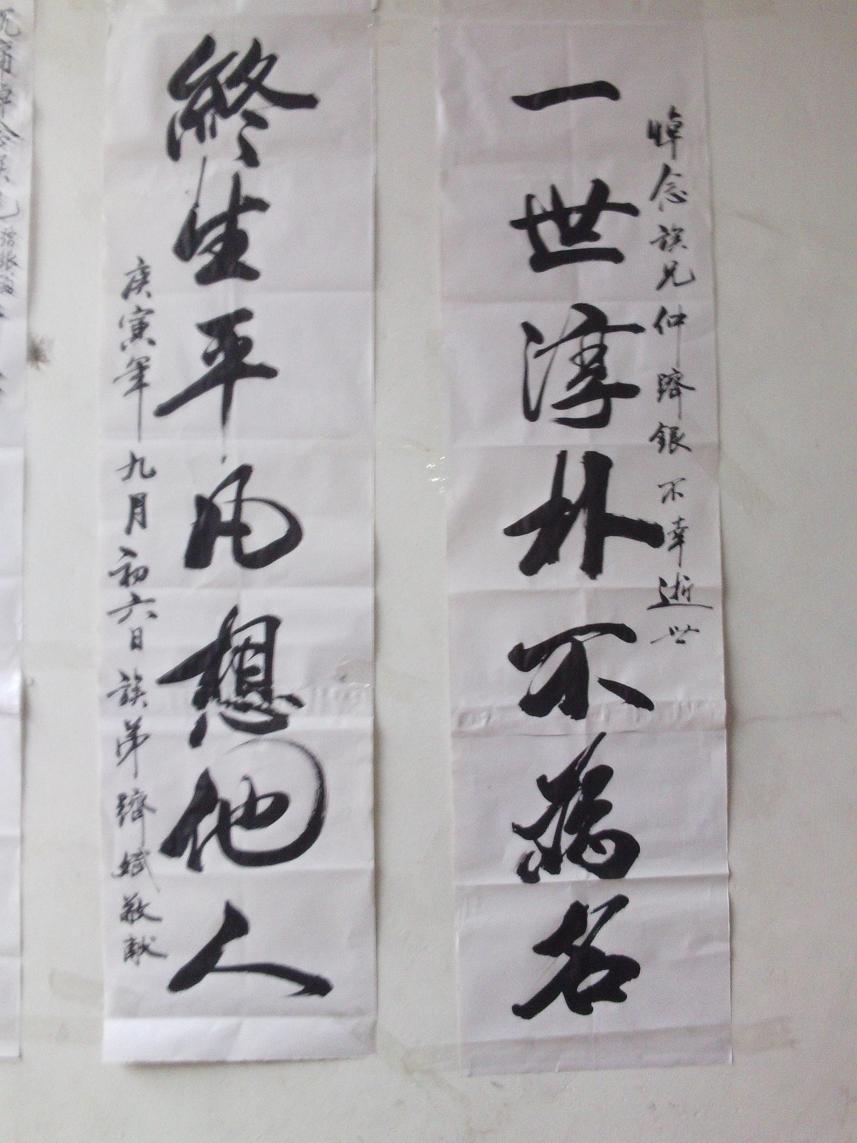 悼念族兄仲 銀不幸逝世
一世淳朴不為名
終生平凡想他人
庚寅年九月初六日族弟 敬献